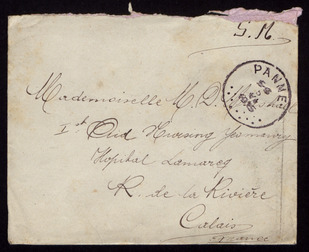 S.M
PANNE
Mademoiselle M. D.
1st Aid Nursing Yeomanry
Hopital Lamarcq
R. de la Rivière
Calais
France